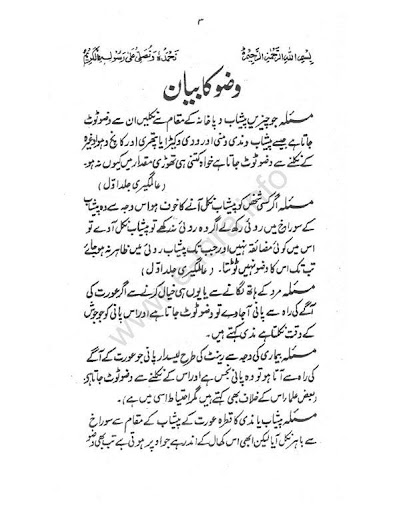 ۳
بِسْمِ اللہِ الرَّحْمٰنِ الرَّحِیْمِ نَحْمَدُہٗ وَنُصَلِّیْ عَلٰی رَسُوْلِہِ الْکَرِیْمِ
وضو کا بیان
مسئلہ جو چیزیں پیشاب و پاخانہ کے مقام سے نکلیں ان سے وضو ٹوٹ
جاتا ہے جیسے پیشاب و مذی و منی اور ودی و کیڑا یا پتھری اور کانچ وغیرہ
کے نکلنے سے وضو ٹوٹ جاتا ہے خواہ کتنی ہی تھوڑی مقدار میں کیوں نہ ہو۔
(عالمگیری جلد اوّل)
مسئلہ اگر کسی شخص کو پیشاب نکل آنے کا خوف ہو اس وجہ سے وہ پیشاب
کے سوراخ میں روئی رکھ لے اگر وہ روئی نہ رکھے تو پیشاب نکل آوے تو
اس میں کوئی مضائقہ نہیں اور جب تک پیشاب روئی میں ظاہر نہ ہو جائے
تب تک اس کا وضو نہیں ٹوٹتا۔ (عالمگیری جلد اوّل)
مسئلہ مرد کے ہاتھ لگانے سے یا یوں ہی خیال کرنے سے اگر عورت کی
آگے کی راہ سے پانی آجاوے تو وضو ٹوٹ جاتا ہے اور اس پانی کو جو جوش
کے وقت نکلتا ہے مذی کہتے ہیں۔
مسئلہ بیماری کی وجہ سے رینٹ کی طرح لیسدار پانی جو عورت کے آگے
کی راہ سے آتا ہو تو وہ پانی نجس ہے اور اس کے نکلنے سے وضو ٹوٹ جاتا ہے
(بعض علما اس کے خلاف بھی کہتے ہیں مگر احتیاط اسی میں ہے)
مسئلہ پیشاب یا مذی کا قطرہ عورت کے پیشاب کے مقام سے سوراخ
سے باہر نکل آیا لیکن ابھی اس کھال کے اندر ہے جو اوپر ہوتی ہے تب بھی وضو